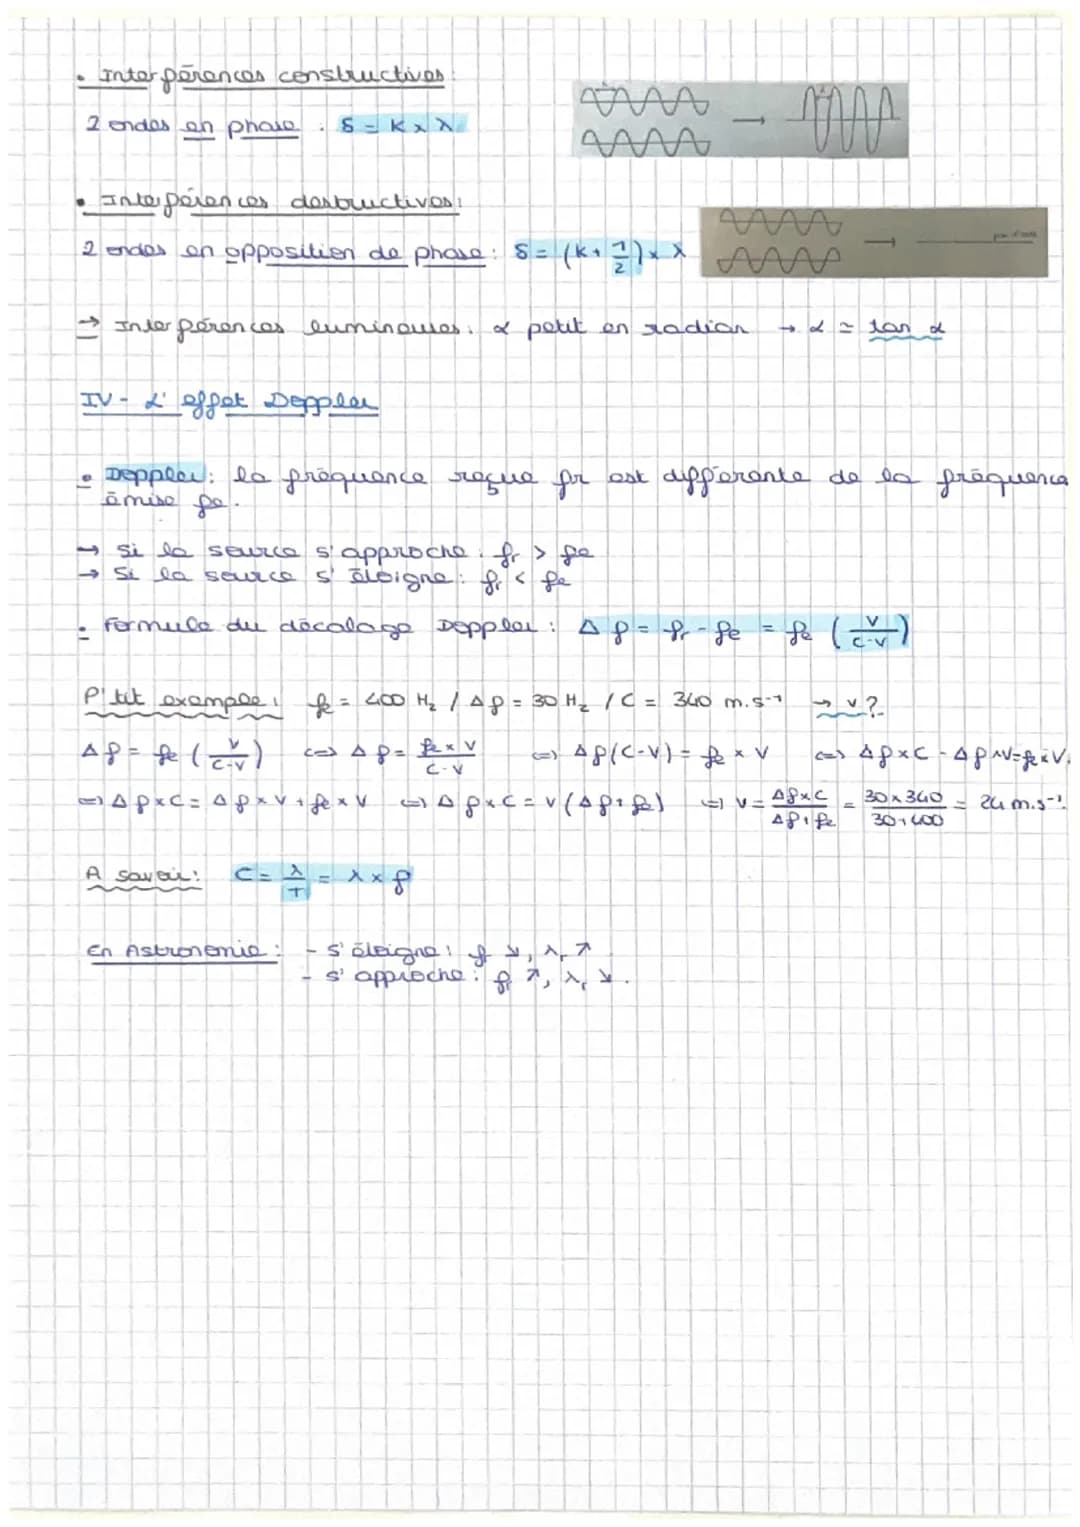 • Interférences constructives :
2 ondes en phase : δ = k x λ
• Interférences destructives :
2 ondes en opposition de phase : δ = (k + 1/2) x λ
→ Interférences lumineuses : α petit en radian → α = tan α
IV - L'effet Doppler
• Doppler : la fréquence reçue fr est différente de la fréquence
émise fe.
→ Si la source s'approche : fr > fe
→ Si la source s'éloigne : fr < fe
• Formule du décalage Doppler : Δf = fr - fe = fe (v/(c-v))
P'tit exemple : fe = 400 Hz / Δf = 30 Hz / C = 340 m.s⁻¹ → v ?
Δf = fe (v/(c-v)) <=> Δf = (fe x v)/(c-v) <=> Δf(c-v) = fe x v <=> Δf x c - Δf x v = fe x v.
<=> Δf x c = Δf x v + fe x v <=> Δf x c = v (Δf + fe) <=> v = (Δf x c)/(Δf + fe) = (30 x 340)/(30 + 400) = 24 m.s⁻¹.
A savoir : C = λ/T = λ x f
En Astronomie : - s'éloigne : f ↘, λr ↗
- s'approche : fr ↗, λr ↘.